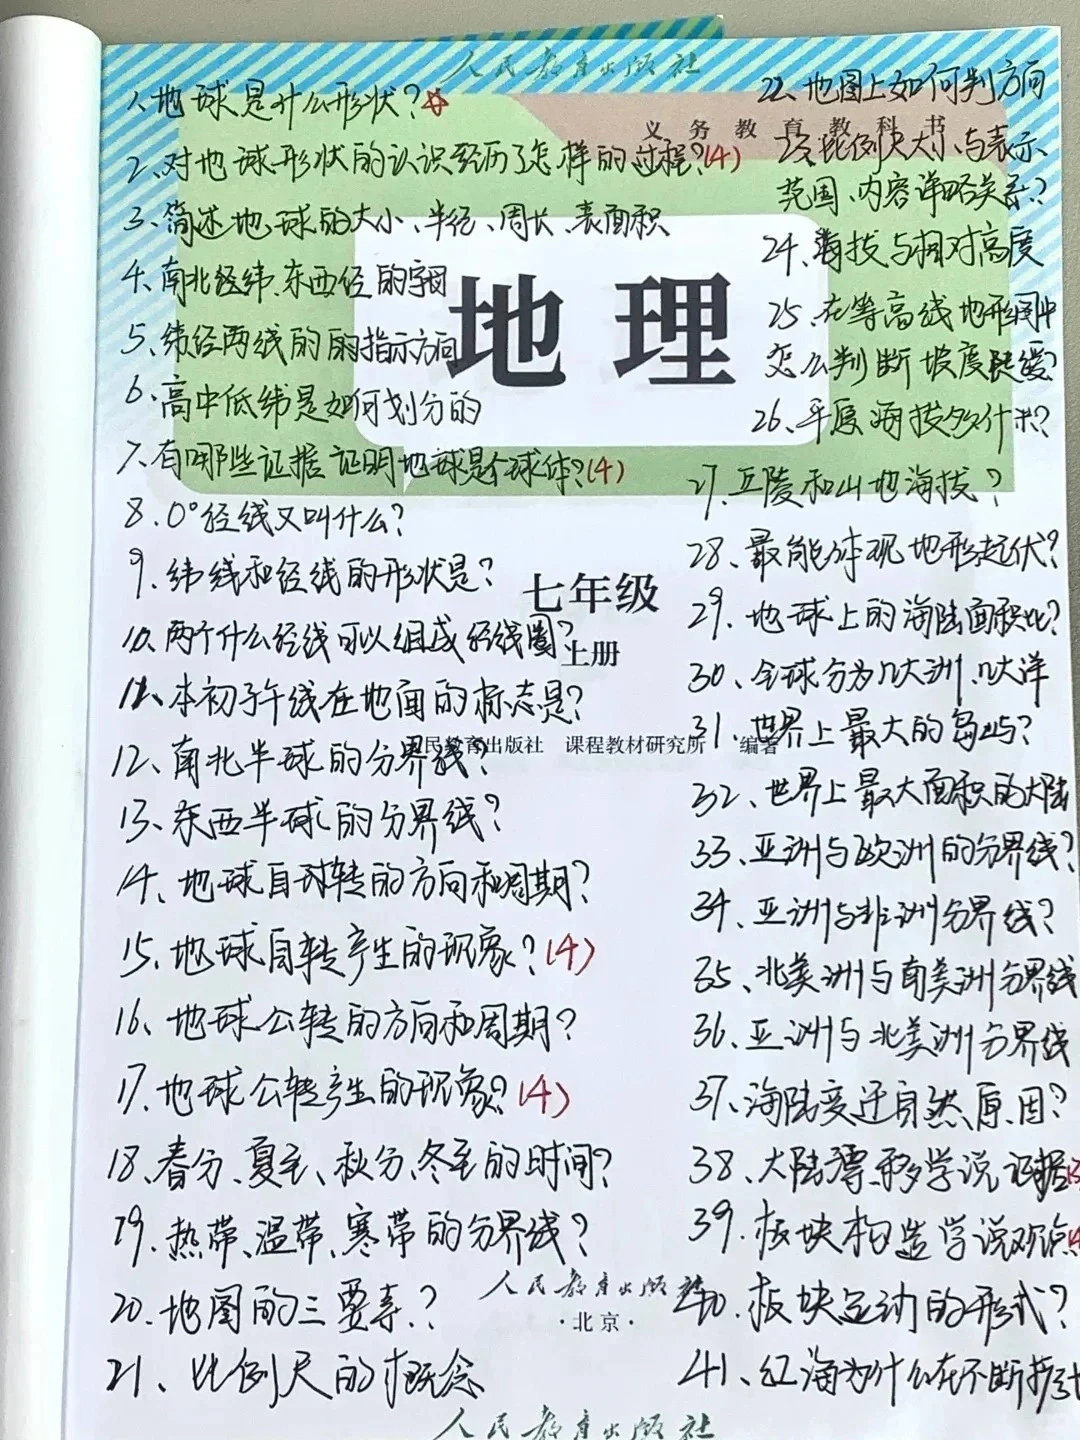 人民教育出版社
义务教育教科书
地理
七年级
上册
人民教育出版社 课程教材研究所 编著
人民教育出版社
·北京·
人民教育出版社
1、地球是什么形状?
2、对地球形状的认识经历了怎样的过程?(4)
3、简述地球的大小、半径、周长、表面积
4、南北经纬、东西经的字母
5、纬经两线的的指示方向
6、高中低纬是如何划分的
7、有哪些证据证明地球是个球体?(4)
8、0°经线又叫什么?
9、纬线和经线的形状是?
10、两个什么经线可以组成经线圈?
11、本初子午线在地面的标志是?
12、南北半球的分界线?
13、东西半球的分界线?
14、地球自转的方向和周期?
15、地球自转产生的现象?(4)
16、地球公转的方向和周期?
17、地球公转产生的现象?(4)
18、春分、夏至、秋分、冬至的时间?
19、热带、温带、寒带的分界线?
20、地图的三要素?
21、比例尺的概念
22、地图上如何判方向
23、比例尺大小与表示
范围、内容详略关系?
24、海拔与相对高度
25、在等高线地形图中
怎么判断坡度陡缓?
26、平原海拔多少米?
27、丘陵和山地海拔?
28、最能体现地形起伏?
29、地球上的海陆面积比?
30、全球分为几大洲、几大洋
31、世界上最大的岛屿?
32、世界上最大面积的大陆
33、亚洲与欧洲的分界线?
34、亚洲与非洲分界线?
35、北美洲与南美洲分界线
36、亚洲与北美洲分界线
37、海陆变迁自然原因?
38、大陆漂移学说证据(3
39、板块构造学说观点(4
40、板块运动的形式?
41、红海为什么在不断扩